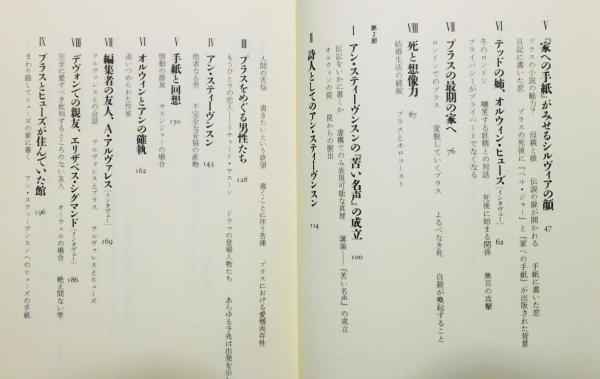 V 『家への手紙』がみせるシルヴィアの顔 47
プラスの小説の魅力？ 母親と娘 伝説の扉が開かれる 手紙に書いた恋
日記に書いた恋 プラスの死後に『ベル・ジャー』と『家への手紙』が出版された背景
VI テッドの姉、オルウィン・ヒューズ［インタヴュー］ 62
冬のロンドン 嘲笑する妖精との対話 死後に始まる関係 無言の攻撃
プライバシーがプライベートでなくなる
VII プラスの最期の家へ 76
ロンドンでのプラス 変貌していくプラス よるべなき死 自殺が喚起する
VIII 死と想像力 87
結婚生活の破綻 プラスとホロコースト
第2部
I アン・スティーヴンスンの『苦い名声』の成立 100
伝記をいかに書くか 虚構でのみ表現可能な真理 講演――『苦い名声』の成立
オルウィンの罠 罠からの脱出
II 詩人としてのアン・スティーヴンスン 114
人間の苦悩 書きたいという欲望 書くことに伴う苦痛 プラスにおける愛憎両存性
III プラスをめぐる男性たち 128
もうひとりの恋人――リチャード・サスーン ドラマの登場人物たち あらゆる予兆は出発を示し
IV アン・スティーヴンスン 143
他者なる男 不完全な妥協の産物
V 手紙と回想 150
情動の源泉 サリンジャーの場合
VI オルウィンとアンの確執 162
追いつめられた作家
VII 編集者の友人、A・アルヴァレス［インタヴュー］ 169
アルヴァレスとの会話 アルヴァレスとプラス アルヴァレスとヒューズ
VIII デヴォンでの親友、エリザベス・シグマンド［インタヴュー］ 186
完全に愛すべき批判するところのない友人 オーウェルの場合 絶え間ない雫
IX プラスとヒューズが住んでいた館 196
まわり路してヒューズの家に着く アン・スティーヴンスンへのヒューズの手紙